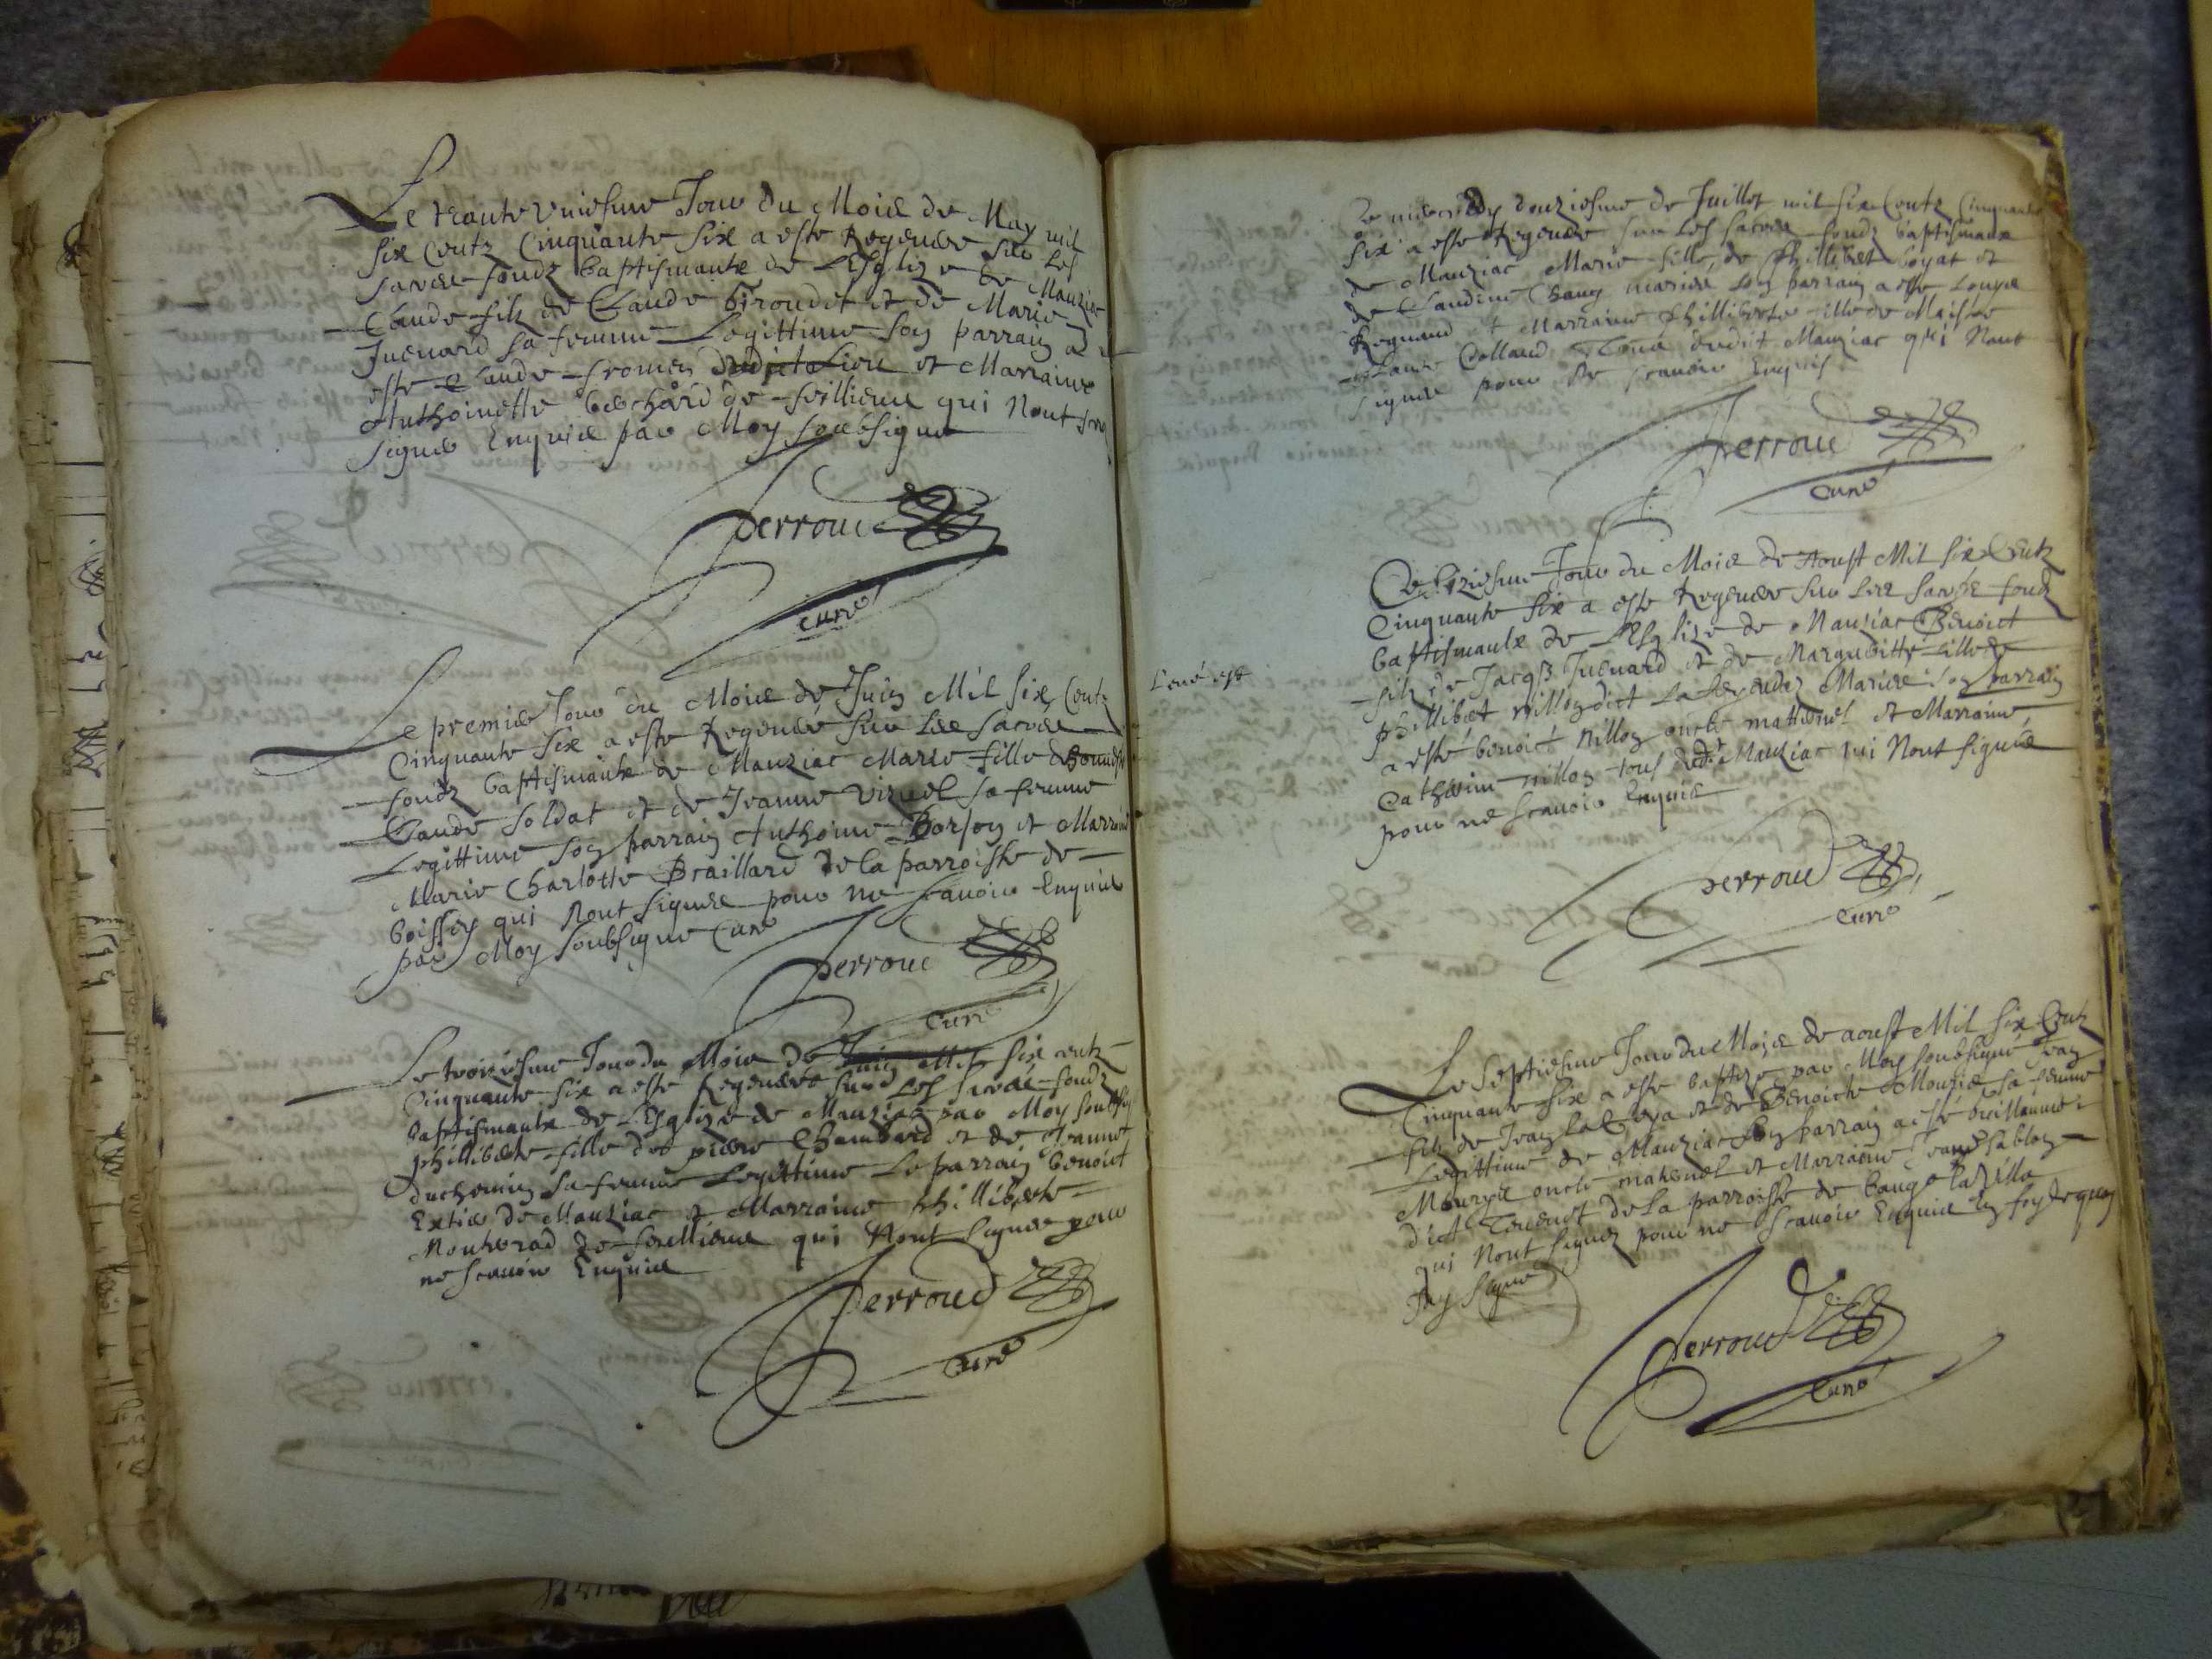 Le trante uniesme Jour du Mois de May mil
six Centz Cinquante six a este Regenere sur les
sacres fondz baptismaulx de L'Esglize de Manziac
Claude filz de Claude Giroudet et de Marie
Juenard sa femme Legittime son parrain a
este Claude fromen dudict Lieu et Marraine
Anthoinette bechard de feillieux qui Nont
signes Enquis par Moy soubsigne
Perroud
curé
Le premier Jour du Mois de Juin Mil six Centz
Cinquante six a este Regeneré sur Les sacres
fondz baptismaulx de Manziac Marie fille de
Claude Soldat et de Jeanne sa femme
Legittime son parrain Anthoine Borjon et Marraine
Marie Charlotte Braillard de la parroisse de
boissey qui Nont signes pour ne scavoir Enquis
par Moy soubsigne Curé
Perroud
Curé
Le troiziesme Jour du Mois de Juin Mil six centz
Cinquante six a este Regeneree sur Les sacres fondz
baptismaulx de L'Esglize de Manziac par Moy
philliberte fille de pierre Chambard et de Jeanne
duchemin sa femme Legittime Le parrain benoict
de Manziac et Marraine philliberte
de feillieux qui Nont signes pour
ne scavoir Enquis
Perroud
Curé
Ce mercredy douziesme de Juillet mil six Centz Cinquante
six a este Regeneree sur Les sacres fondz baptismaulx
de Manziac Marie fille de Phillibert boyat et
de Claudine Chanu maries son parrain a este
Regnaud et Marraine Phillibert fille de Maistre
Claude Colland Tous dudict Manziac qui Nont
signes pour ne scavoir Enquis
Perroud
Curé
Ce Jour du Mois de Aoust Mil six Centz
Cinquante six a este Regenere sur Les sacres fondz
baptismaulx de L'Esglize de Manziac Benoict
filz de Jacq Juenard et de Margueritte fille de
phillibert nillon dict La Maries son parrain
a este benoict nillon oncle matternel et Marraine
Catherine nillon tous de Manziac qui Nont signes
pour ne scavoir Enquis
Perroud
Curé
Le Septiesme Jour du Mois de aoust Mil six Centz
Cinquante six a este baptize par Moy soubsigné Jean
filz de Jean et de Benoiste sa femme
Legittime de Manziac son parrain a esté Guillaume
oncle maternel et Marraine Jeanne sablon
dict de la parroisse de baugé la Ville
qui Nont signez pour ne scavoir Enquis En foy de quoy
Jay Signe
Perroud
Curé